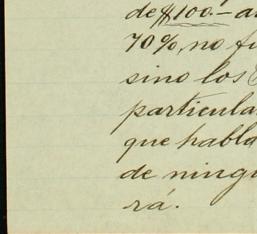 de $100.- a
70%, no fu
sino los
particula
que habla
de ningu
rá.